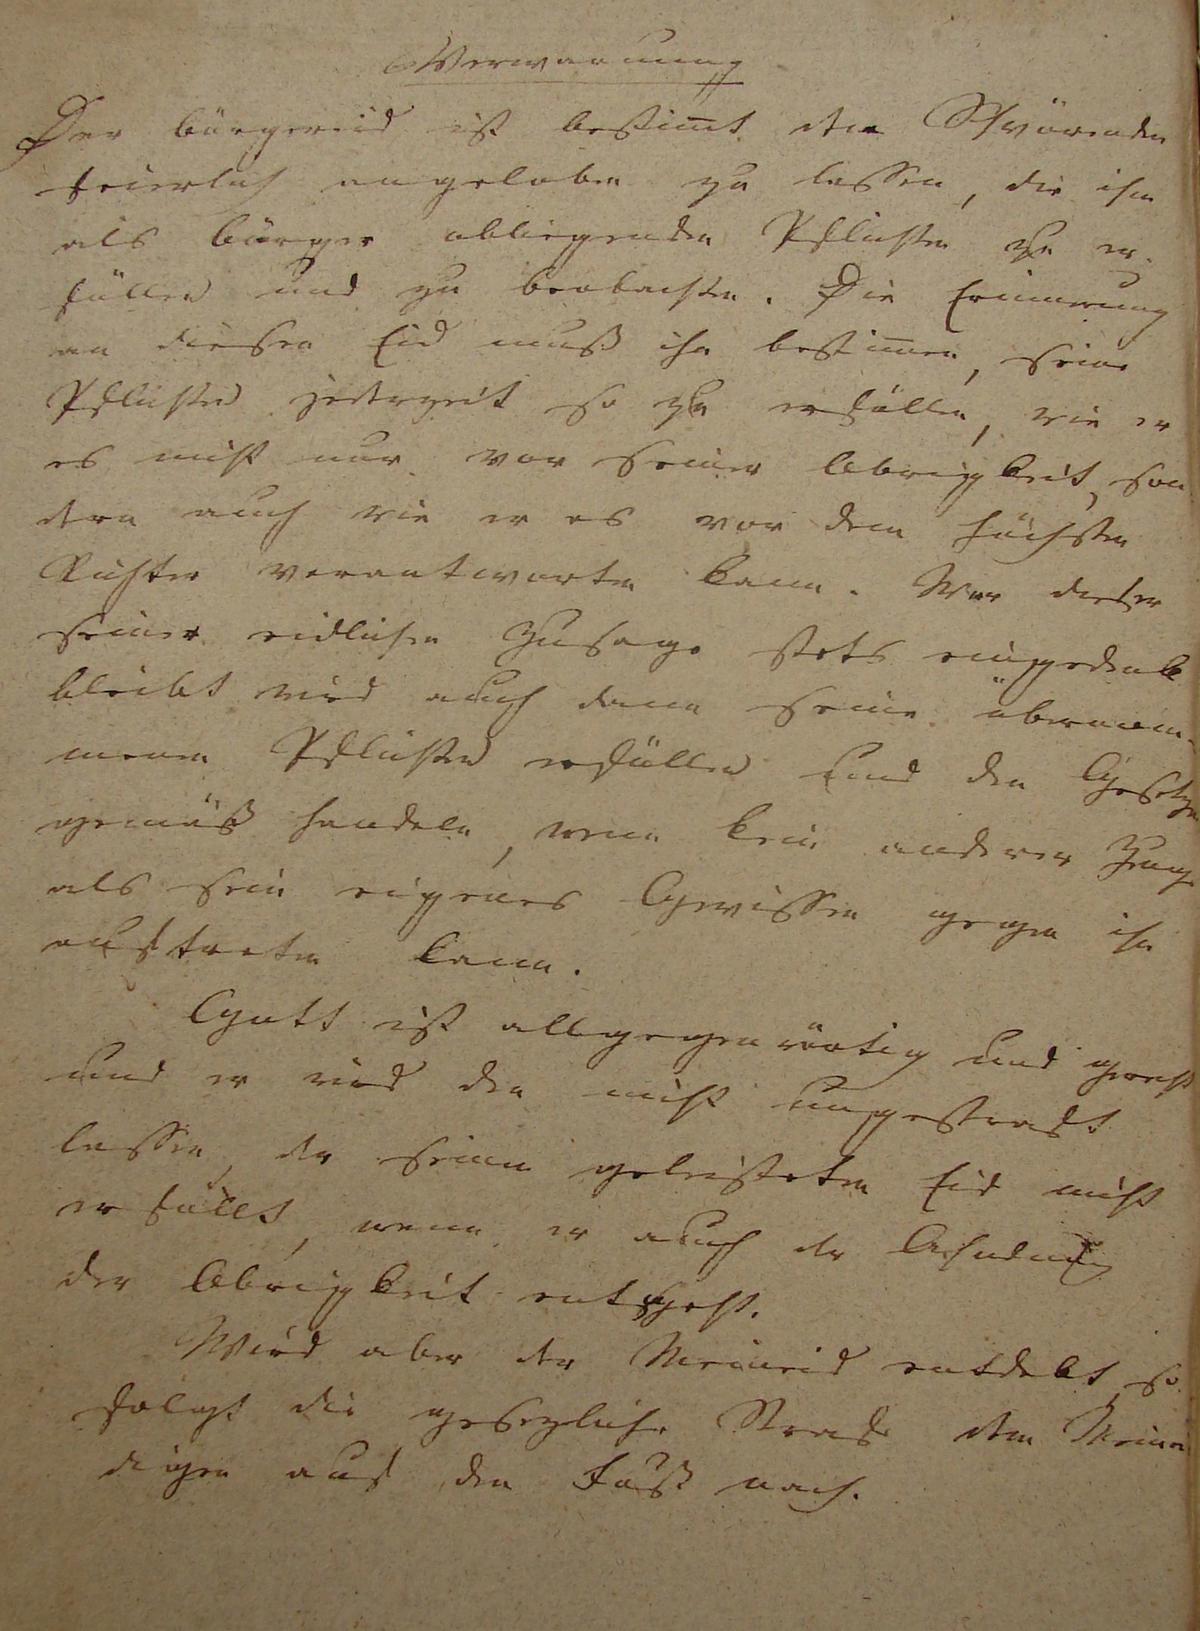 Verwarnung
Der bürgereid ist bestimt den Schwörenden
feierlich angeloben zu lassen, die ihm
als bürger obliegenden Pflichten zu er-
füllen und zu beobachten. Die Erinnerung
an diesen Eid muß ihn bestimen, seine
Pflichten jederzeit so zu erfüllen, wie er
es nicht nur vor seiner Obrigkeit, son
dern auch wie er es vor dem höchsten
Richter verantworten kann. Wer dieser
seiner eidlichen Zusage stets eingedenk
bleibt wird auch dann seine übernom-
menen Pflichten erfüllen und den Gesetzen
gemäß handeln, wenn kein anderer Zeuge
als sein eigenes Gewissen gegen ihn
auftreten kann.
Gott ist allgegenwärtig und gerecht
und er wird den nicht ungestraft
lassen, der seinen geleisteten Eid nicht
erfüllt, wenn er auch der Ahndung
der Obrigkeit entgeht.
Wird aber der Meineid entdekt, so
folgt die gesezliche Strafe dem Meinei
digen auf den Fuß nach.